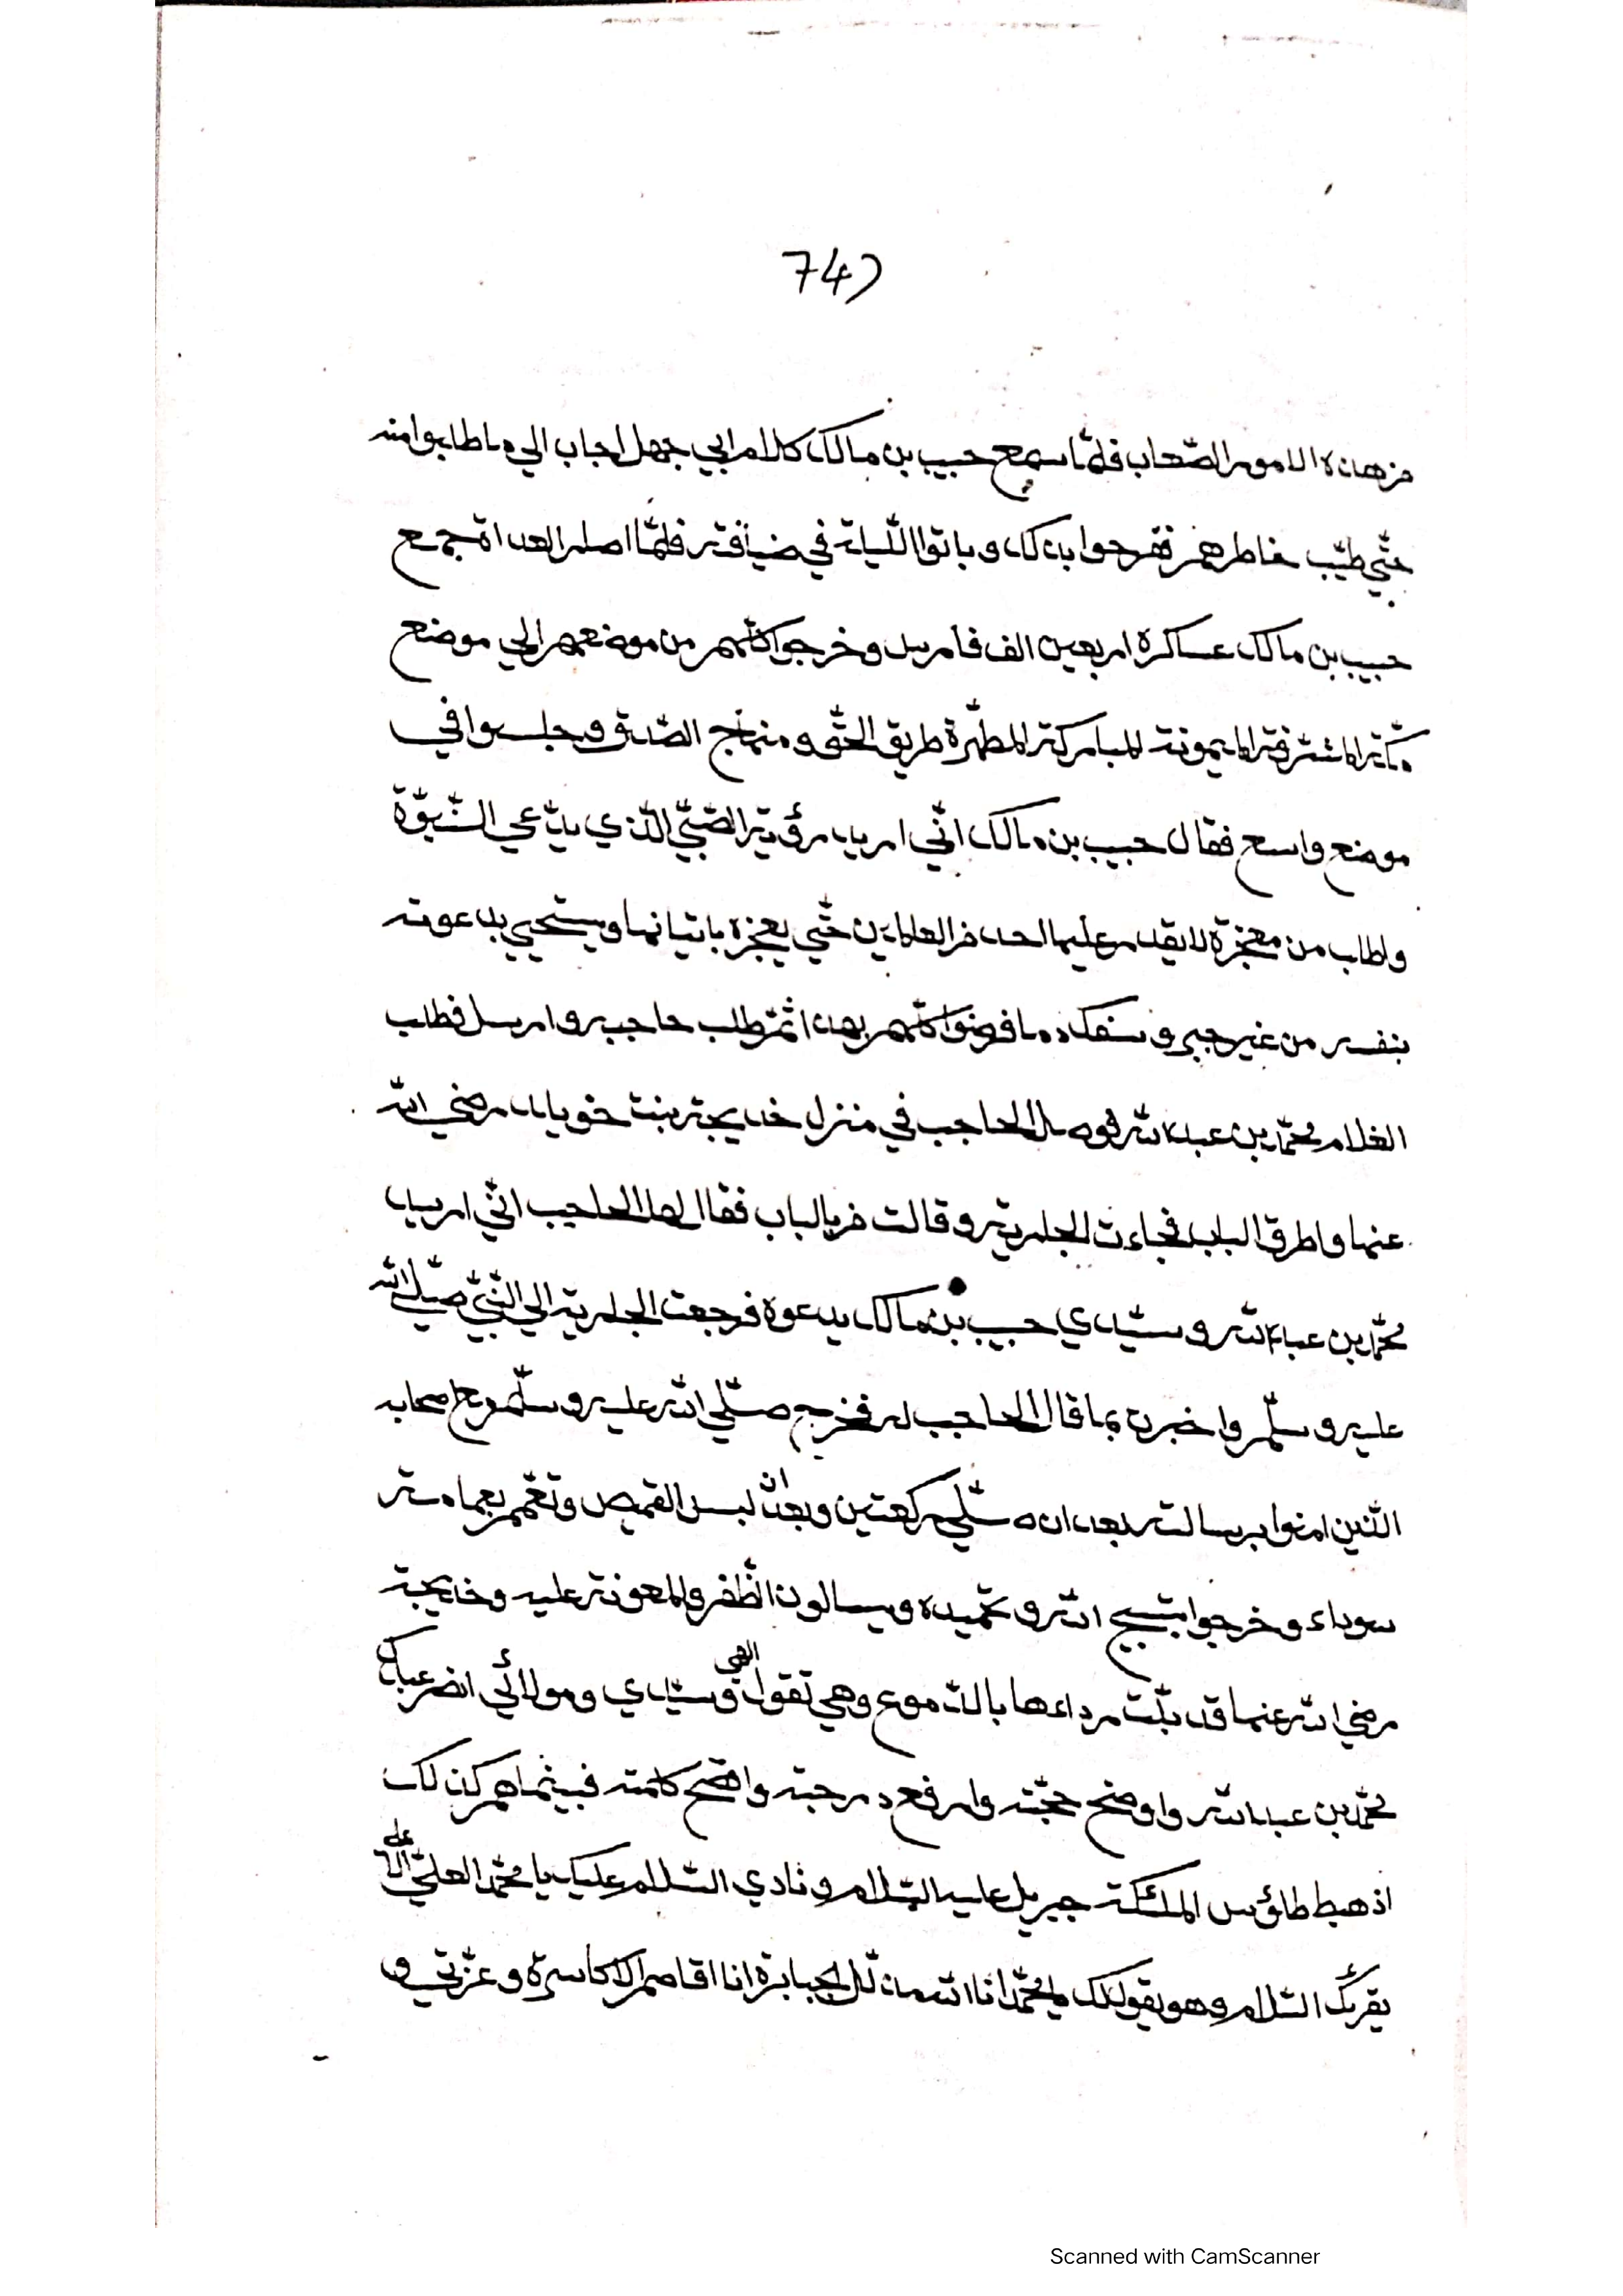 74)
من هذه الامور الصّعاب فلمّا سمع حبيب بن مالك كلام ابي جهل اجاب الي ما طلبوا منه
حتّي طيّب خاطرهم ففرحوا بذلك و باتوا اللّيلة في ضيافته فلمّا العداة جمع
حبيب بن مالك عساكره اربعين الف فارس و خرجوا كلّهم من موضعهم الي موضع
مكّة المشرفة الميمونة المباركة المطهّرة طريق الحقّ و منهاج الصّدق و جلسوا في
موضع واسع فقال حبيب بن مالك انّي اريد رؤية الصّبيّ الّذي يدّعي النّبوّة
واطلب من معجزة لا يقدر عليها احد من العالمين حتّي يعجزه باتيانها ويستحيي بدعوته
بنفسه من غير جبر و سفك دما فرضوا كلّهم بهذا ثمّ طلب حاجبه و ارسل فطلب
الغلام محمّد بن عبد الله فوصل الحاجب في منزل خديجة بنت خويلد رضي الله
عنها واطرق الباب فجاءت الجارية و قالت من بالباب فقال لها الحاجب انّي اريد
محمّد بن عبد الله و سيّدي حبيب بن مالك يدعوه فرجعت الجارية الي النّبيّ صلّي الله
عليه و سلّم واخبرت بما قال الحاجب له فخرج صلّي الله عليه و سلّم مع اصحابه
الّذين امنوا برسالته بعد ان صلّي ركعتين وبعد ان لبس القميص وتعمّم بعمامة
سوداء و خرجوا بتسبيح الله و تحميده و يسالون الظّفر والمعونة عليه و خديجة
رضي الله عنها قد بلّت رداءها بالدّموع وهي تقول الهي و سيّدي و مولائي انصر عبدك
محمّد بن عبد الله واوضح حجّته وارفع درجته وافصح كلمته فبينما هم كذلك
اذ هبط طاؤس الملئكة جبريل عليه السّلام و نادي السّلام عليك يا محمّد العليّ الاعلي
يقرئك السّلام وهو يقول لك يا محمّد انا الله مذلّل الجبابرة انا اقاصم الاكاسرة و عزّتي و
Scanned with CamScanner